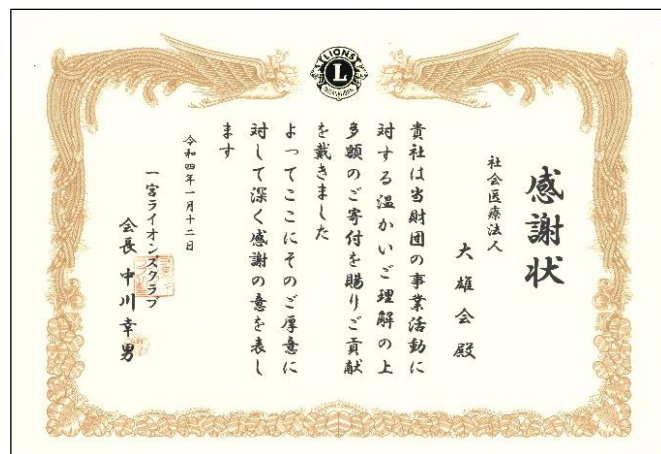 LIONS
L
INTERNATIONAL
感謝状
社会医療法人
大雄会殿
貴社は当財団の事業活動に
対する温かいご理解の上
多額のご寄付を賜りご貢献
を戴きました
よってここにそのご厚意に
対して深く感謝の意を表し
ます
令和四年一月十二日
一宮ライオンズクラブ
会長 中川幸男